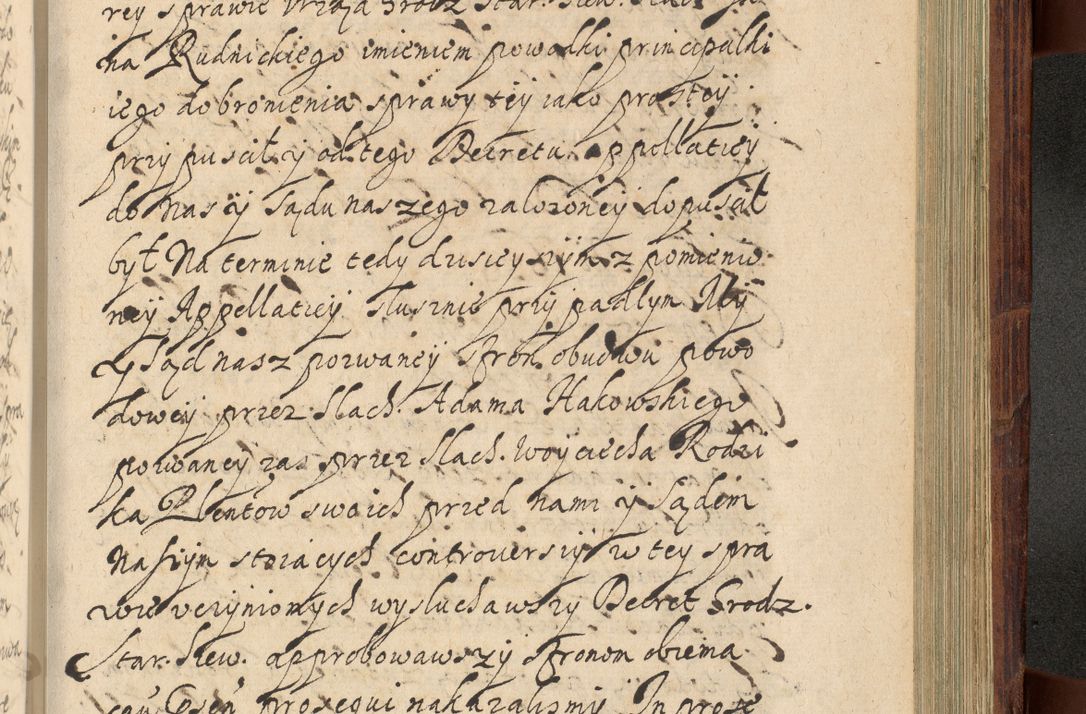 rey sprawie Vrząd Grodz Star. Siew.
na Rudnickiego imieniem powadki principalki
iego do bronienia sprawy tey iako prostey
przypuscił y od tego Decretu appellatiey
do nas y Sądu naszego załozoney dopuscił
był Na terminie tedy dzisieyszym z pomienio
ney Appellatiey słusznie przypadłym My
y Sąd nasz pozwaney stron obudwu powo
dowey przez Slach. Adama Hakowskiego
pozwaney zas przez Slach. Woyciecha Rodzi
ka Plentow swoich przed nami y Sądem
Naszym stoiących controuersiy w tey spra
wie vczynionych wysłuchawszy Decret Grodz.
Star. Siew. approbowawszy stronom obiema
prosequi nakazalismy In prose